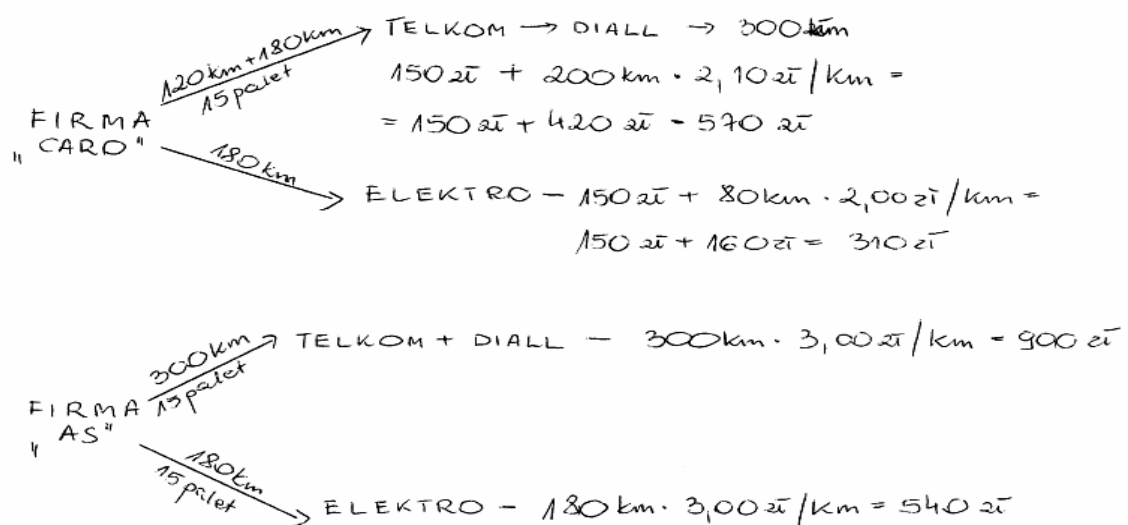 120km+180km
15 palet
TELKOM → DIALL → 300km
150 zł + 200km · 2,10 zł/km =
= 150 zł + 420 zł = 570 zł
FIRMA
„CARO"
180km
ELEKTRO – 150 zł + 80km · 2,00 zł/km =
150 zł + 160 zł = 310 zł
300km
15 palet
TELKOM + DIALL – 300km · 3,00 zł/km = 900 zł
FIRMA
„AS"
180km
15 palet
ELEKTRO – 180km · 3,00 zł/km = 540 zł